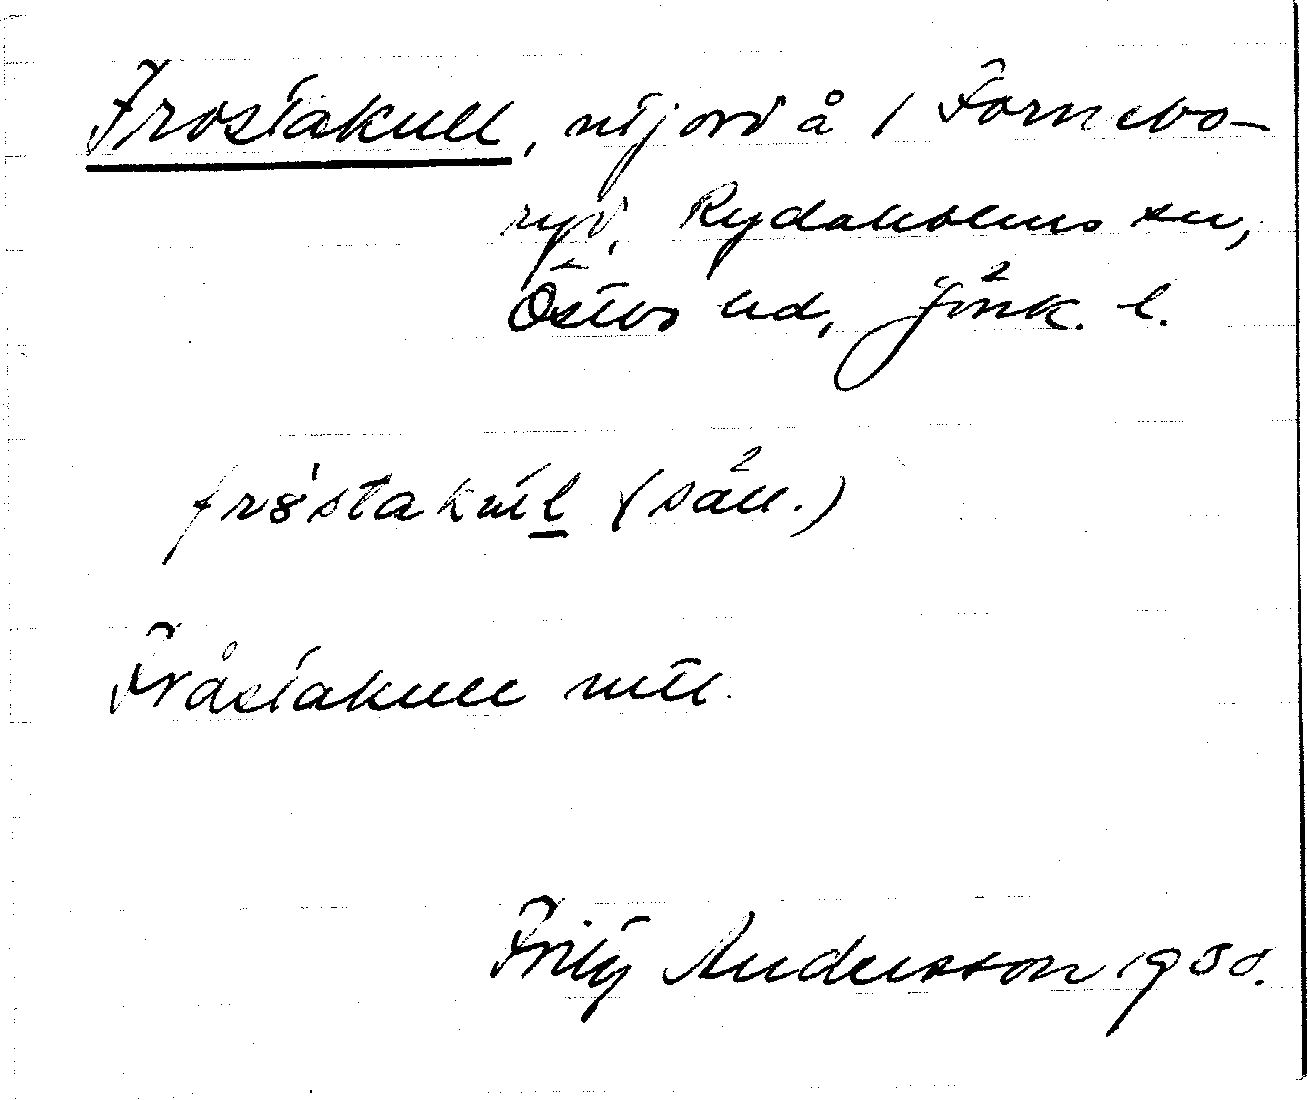 Frostakull, utjord å 1 Fornebo-
ryd, Rydaholms sn,
Östbo hd, Jönk. l.
fr8'stakul (såll.)
Fråstakull mtl.
Fritz Andersson 1930.